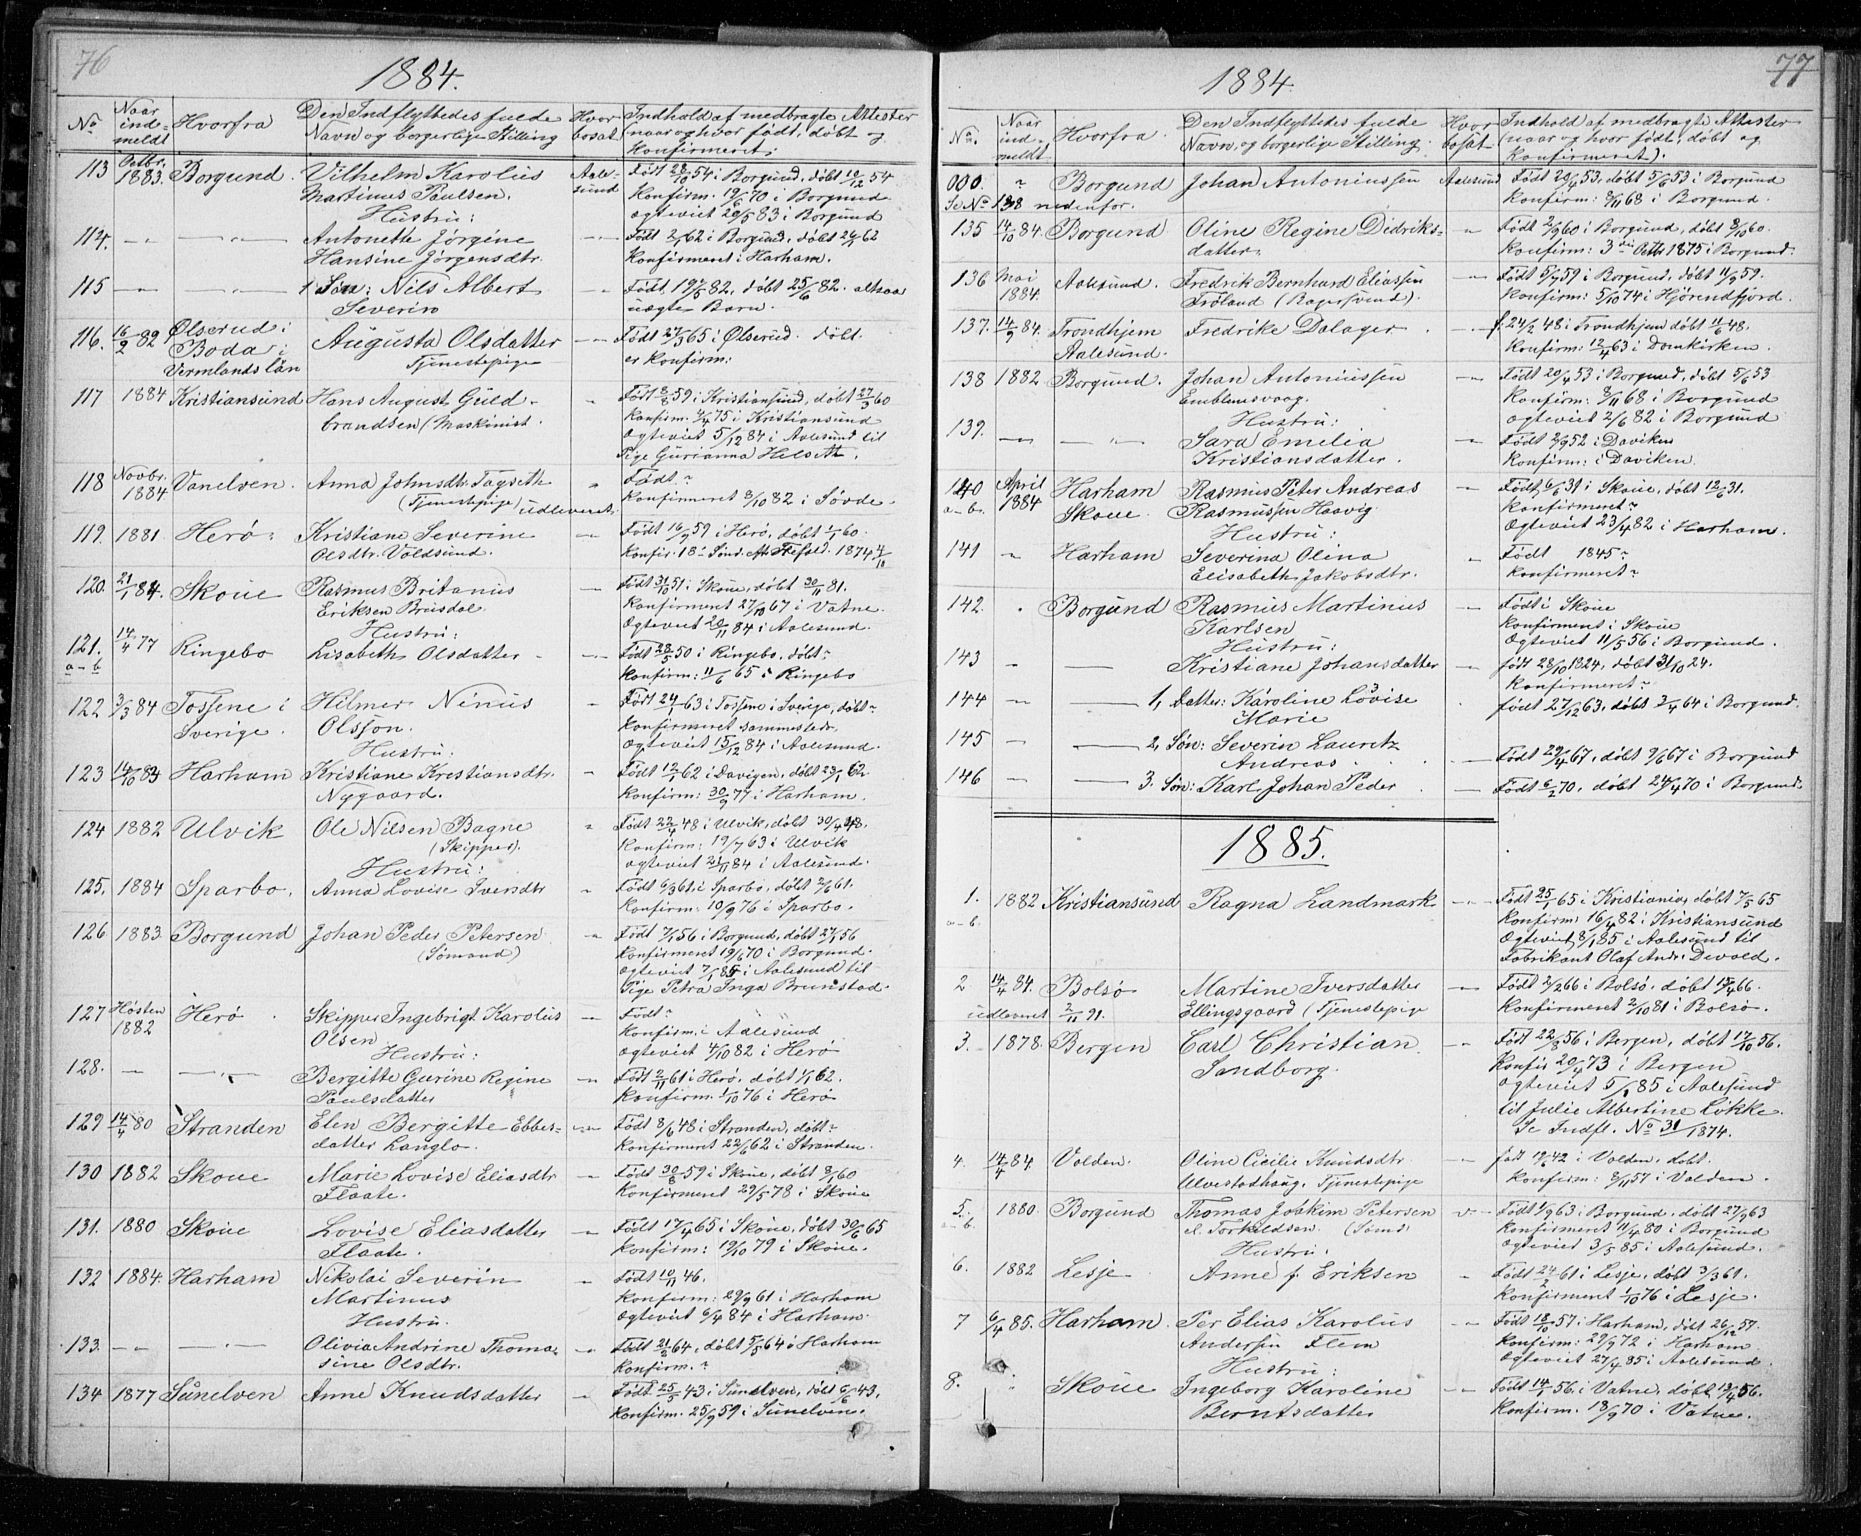 76
1884.
No
Naar inde= meldt
Hvorfra
Den Indflyttedes fulde Navn og borgerlige Stilling
Hvor bosat
Indhold af medbragte Attester (naar og hvor født, døbt og konfirmeret.
113 Octbr. 1883. Borgund. Vilhelm Karolus Aale= Født 28/10 54 i Borgund, døbt 10/12 54
Martinus Paulsen. sund Konfirm. 19/6 70 i Borgund
Hustru: Ogteviet 20/5 83 i Borgund
114. Antonette Jørgine Født 2/1 62 i Borgund, døbt 24/ 62
Hansine Jørgensdtr. Konfirmeret i Harham.
115 1 Søn: Nils Albert Født 19/5 82, døbt 25/6 82. altsaa
Severin uægte Barn.
116. 16/2 82 Ølserud i Augusta Olsdatter Født 27/3 65 i Ølserud. døbt.
Boda i Tjenestepige er konfirm:
Vermlands län
117 1884 Kristiansund Hans August Guld- Født 18/8 59 i Kristiansund, døbt 27/3 60
brandsen (Maskinist. Konfirm. 4/4 75 i Kristiansund
Ogteviet 5/12 84 i Aalesund til
Pige Gurianna Helseth.
118 Novbr. 1884 Vanelven. Anna Johnsdtr. Fagseth Født ~
(Tjenestepige) udleveret. Konfirmeret 8/10 82 i Søvde.
119. 1881 Herø Kristiane Severine Født 16/9 59 i Herø, døbt 1/1 60.
Olsdtr. Voldsund. Konfir. 18 Sønd. Aft. Trefold. 1874 4/10
120. 21/1 84. Skoue Rasmus Britanus Født 31/10 51 i Skoue, døbt 30/11 81.
Eriksen Brusdal. Konfirment 27/10 67 i Vatne.
Hustru: Ogteviet 20/11 84 i Aalesund.
121. 14/4 77 Ringebo Lisabeth Olsdatter Født 28/5 50 i Ringebo, døbt ~
a-b Konfirm: 11/6 65 i Ringebo
122 3/3 84 Tossene i Hilmer Ninus Født 24/1 63 i Tossene i Sverige, døbt ~
Sverige. Olsson. Konfirmeret sammesteds.
Hustru: Ogteviet 15/12 84 i Aalesund.
123 14/10 83 Harham Kristiane Kristiansdtr. Født 12/1 62 i Davigen, døbt 23/1 62
Nygaard. Konfirm: 30/9 77 i Harham.
124 1882 Ulvik Ole Nilsen Bagne Født 22/4 48 i Ulvik, døbt 30/4 48.
(Skipper). Konfirm: 19/7 63 i Ulvik
Hustru: Ogteviet 21/11 84 i Aalesund.
125. 1884 Sparbo. Anna Lovise Iversdtr Født 6/3 61 i Sparbo, døbt 2/6 61.
Konfirm: 10/9 76 i Sparbo.
126 1883 Borgund Johan Peder Petersen Født 7/1 56 i Borgund, døbt 27/1 56
(Sømand) Konfirmeret 19/6 70 i Borgund.
Ogteviet 7/1 85 i Aalesund til
Pige Petra Inga Brunstad.
127 Høsten 1882 Herø. Skipper Ingebrigt Karolus Født ~
Olsen Konfirm. i Aalesund
Hustru: Ogteviet 4/10 82 i Herø
128. Bergitte Gurine Regine Født 2/11 61 i Herø, døbt 1/1 62.
Paulsdatter Konfirm. 1/10 76 i Herø
129 14/4 80 Stranden Elen Bergitte Ebbes= Født 8/6 48 i Stranden, døbt ~
datter Langlo. Konfirmeret 22/6 62 i Stranden.
130 1882 Skoue Marie Lovise Eliasdtr Født 30/8 59 i Skoue, døbt 8/1 60
Flaate. Konfirmeret 29/5 78 i Skoue
131. 1880 Skoue Lovise Eliasdatter Født 17/4 65 i Skoue, døbt 30/6 65
Flaate. Konfirm: 19/10 79 i Skoue.
132 1884. Harham Nikolai Severin Født 10/11 46.
Martinus Konfirm: 29/9 61 i Harham
Hustru. Ogteviet 6/4 84 i Harham
133. Olivia Andrine Thoma= Født 21/2 64, døbt 5/5 64 i Harham
sine Olsdtr. Konfirm. ~
134 1877 Sunelven Anne Knudsdatter Født 25/5 43 i Sunelven, døbt 6/6 43,
Konfirm. 25/9 59 i Sunelven.
77
1884.
No.
Naar ind. meldt
Hvorfra
Den Indflyttedes fulde Navn og borgerlige Stilling
Hvor bosat
Indhold af medbragte Attester (naar og hvor født, døbt og konfirmeret).
000. Borgund Johan Antoniussen Aalesund Født 20/4 53, døbt 5/6 53 i Borgund
Se No 138 nedenfor. Konfirm: 8/11 68 i Borgund.
135 14/10 84. Borgund Oline Regine Didriks= Født 2/9 60 i Borgund, døbt 8/10 60.
datter. Konfirm: 3die Octbr 1875 i Borgund.
136 Mai 1884. Aalesund. Fredrik Bernhard Eliassen Født 5/7 59 i Borgund, døbt 11/9 59.
Frøland (Ragersvend). Konfirm: 5/10 74 i Hjørendfjord.
137. 14/9 84. Trondhjem Fredrike Dalager f. 24/2 48 i Trondhjem døbt 11/6 48.
Aalesund. Konfirm: 12/4 63 i Domkirken.
138 1882 Borgund. Johan Antoniussen Født 20/4 53 i Borgund, døbt 5/6 53
Emblemsvaag. Konfirm: 8/11 68 i Borgund
Hustru: Ogteviet 2/6 82 i Borgund
139. Sara Emelia Født 2/9 52 i Daviken
Kristiansdatter. Konfirm: i Daviken.
140 April 1884 Harham Rasmus Peter Andreas Født 6/6 31 i Skoue, døbt 12/6 31.
a-b. Skoue. Rasmussen Haavig. Konfirmeret ~
Hustru: Ogteviet 23/4 82 i Harham.
141 Harham Severina Olina Født 1845 ~
Elisabeth Jakobsdtr. Konfirmeret ~
142. Borgund Rasmus Martinius Født i Skoue
Karlsen Konfirment i Skoue
Hustru: Ogteviet 11/5 56 i Borgund.
143 Kristiane Johansdatter født 28/10 1824, døbt 31/10 24.
Konfirmeret ~
144 1, Datter: Karoline Lovise født 27/12 63, døbt 3/4 64 i Borgund.
Marie
145 2, Søn: Severin Lauritz
Andreas. Født 29/4 67, døbt 9/6 67 i Borgund
146 3. Søn: Karl Johan Peder Født 6/2 70, døbt 24/4 70 i Borgund.
1885.
1. 1882 Kristiansund Ragna Landmark Født 25/1 65 i Kristiania, døbt 7/5 65
a-b. Konfirm: 16/4 82 i Kristiansund
Ogteviet 8/1 85 i Aalesund til
Fabrikant Olaf Andr. Devold.
2 14/4 84. Bolsø Martine Iversdatter Født 2/2 66 i Bolsø, døbt 15/4 66.
udleveret 2/11 91. Ellingsgaard (Tjenestepige Konfirmeret 2/10 81 i Bolsø.
3. 1878. Bergen Carl Christian Født 22/8 56 i Bergen, døbt 17/10 56.
Sandborg. Konfir 20/4 73 i Bergen
Ogteviet 5/1 85 i Aalesund
til Julie Albertine Løkke.
Se Indfl. No 31/1874.
4. 14/4 84. Volden. Oline Cicilie Knudsdtr. født 19/6 42 i Volden, døbt.
Ulvestadhaug. Tjenestepige Konfirm: 8/11 57 i Volden.
5. 1880. Borgund Thomas Joakim Petersen Født 1/9 63 i Borgund, døbt 27/9 63
a-b. el. Torkildsen. (Sømd) Konfirmeret 11/4 80 i Borgund
Hustru: Ogteviet 3/5 85 i Aalesund.
6. 1882 Lesje Anne f. Eriksen Født 24/2 61 i Lesje, døbt 3/3 61.
Konfirmeret 1/10 76 i Lesje.
7 6/4 85. Harham. Per Elias Karolus Født 18/10 57 i Harham, døbt 26/12 57.
Andersen Flem Konfirm: 29/9 72 i Harham
Hustru: Ogteviet 27/4 85 i Aalesund.
8. Skoue Ingeborg Karoline Født 14/1 56. i Vatne, døbt 13/4 56.
Berntsdatter Konfirm. 18/9 70 i Vatne.